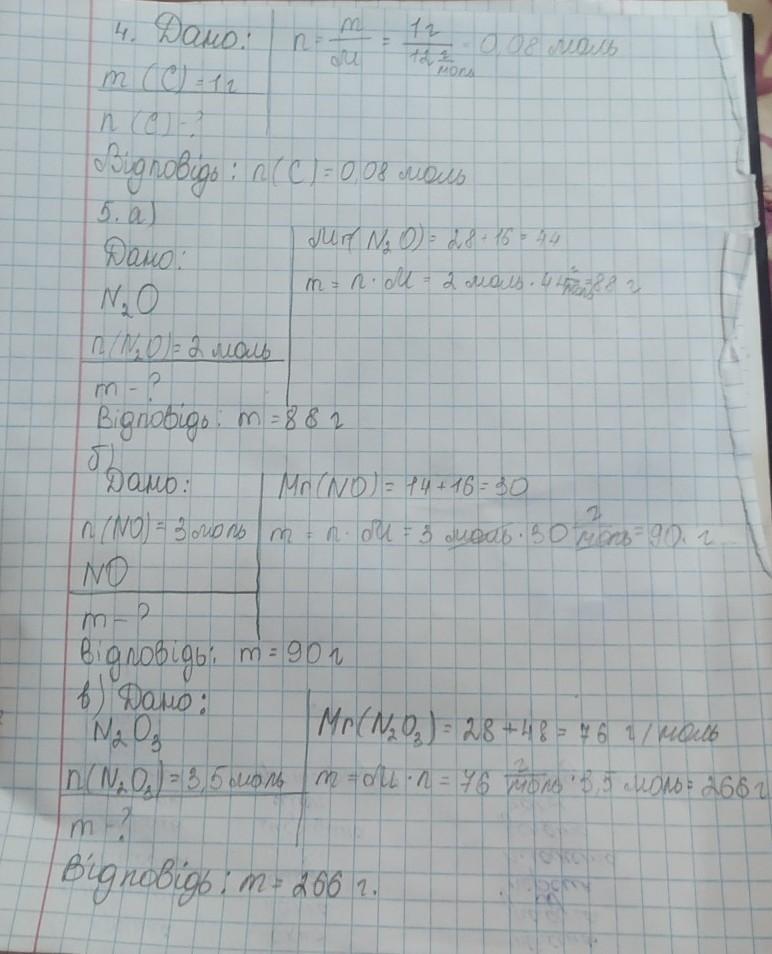 4. Дано:
m (C) = 1г
n (C) - ?
n = m/M = 1г/12 г/моль = 0,08 моль
Відповідь: n(C) = 0,08 моль
5. а)
Дано:
N₂O
n(N₂O) = 2 моль
m - ?
Mr(N₂O) = 28 + 16 = 44
m = n · M = 2 моль · 44 г/моль = 88 г
Відповідь: m = 88 г
б)
Дано:
n(NO) = 3 моль
NO
m - ?
Mr(NO) = 14 + 16 = 30
m = n · M = 3 моль · 30 г/моль = 90 г
Відповідь: m = 90 г
в) Дано:
N₂O₃
n(N₂O₃) = 3,5 моль
m - ?
Mr(N₂O₃) = 28 + 48 = 76 г/моль
m = M · n = 76 г/моль · 3,5 моль = 266 г
Відповідь: m = 266 г.